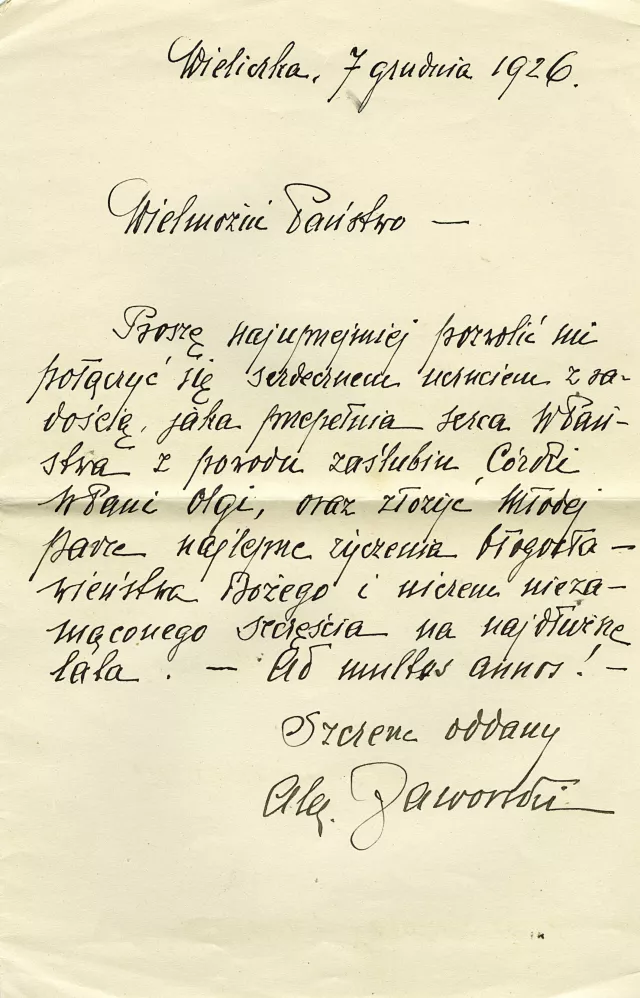 Wieliczka, 7 grudnia 1926.
Wielmożni Państwo —
Proszę najuprzejmiej pozwolić mi
połączyć się serdecznem uczuciem z ra-
dością, jaka przepełnia serca WPań-
stwa z powodu zaślubin Córki
WPani Olgi, oraz złożyć Młodej
parze najlepsze życzenia błogosła-
wieństwa Bożego i niczem nieza-
mąconego szczęścia na najdłuższe
lata. — Ad multos annos! —
Szczerze oddany
Jaworski